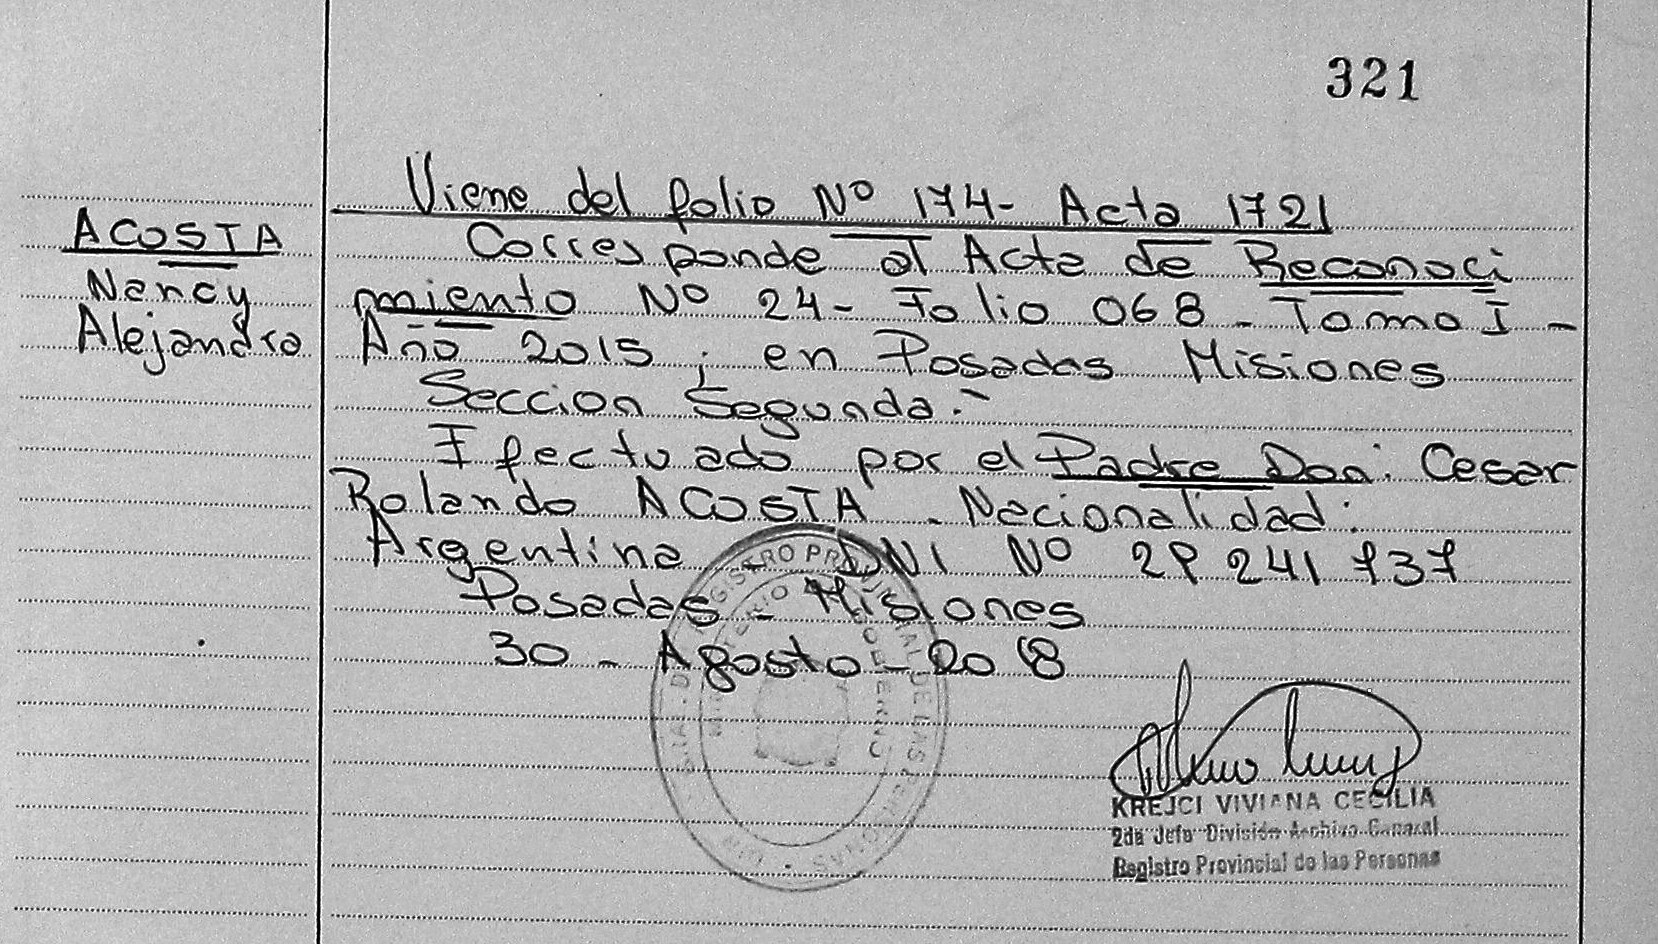 321
Viene del folio Nº 174- Acta 1721
ACOSTA
Nancy
Alejandra
Corresponde al Acta de Reconoci
miento Nº 24- Folio 068 - Tomo I -
Año 2015 ; en Posadas Misiones
Seccion Segunda.-
Efectuado por el Padre Don: Cesar
Rolando ACOSTA - Nacionalidad:
Argentina - DNI Nº 29 241 737
Posadas - Misiones
30 - Agosto - 2018
REGISTRO PROVINCIAL DE LAS PERSONAS
MINISTERIO DE GOBIERNO
KREJCI VIVIANA CECILIA
2da Jefa División Archivo General
Registro Provincial de las Personas